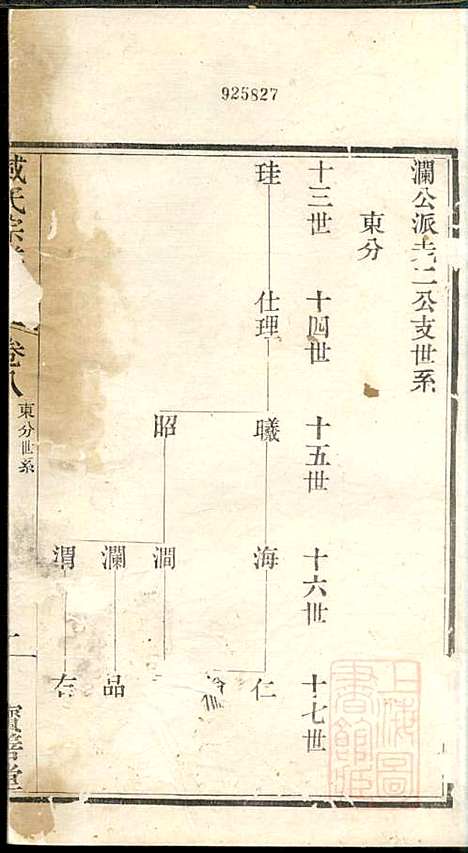 925827
瀾公派十二公支世系
東分
十三世
珪
十四世
仕理
十五世
曦
昭
十六世
海
澗
瀾
渭
十七世
仁
品
右
臧氏宗
卷八
東分世系
上海圖書館藏